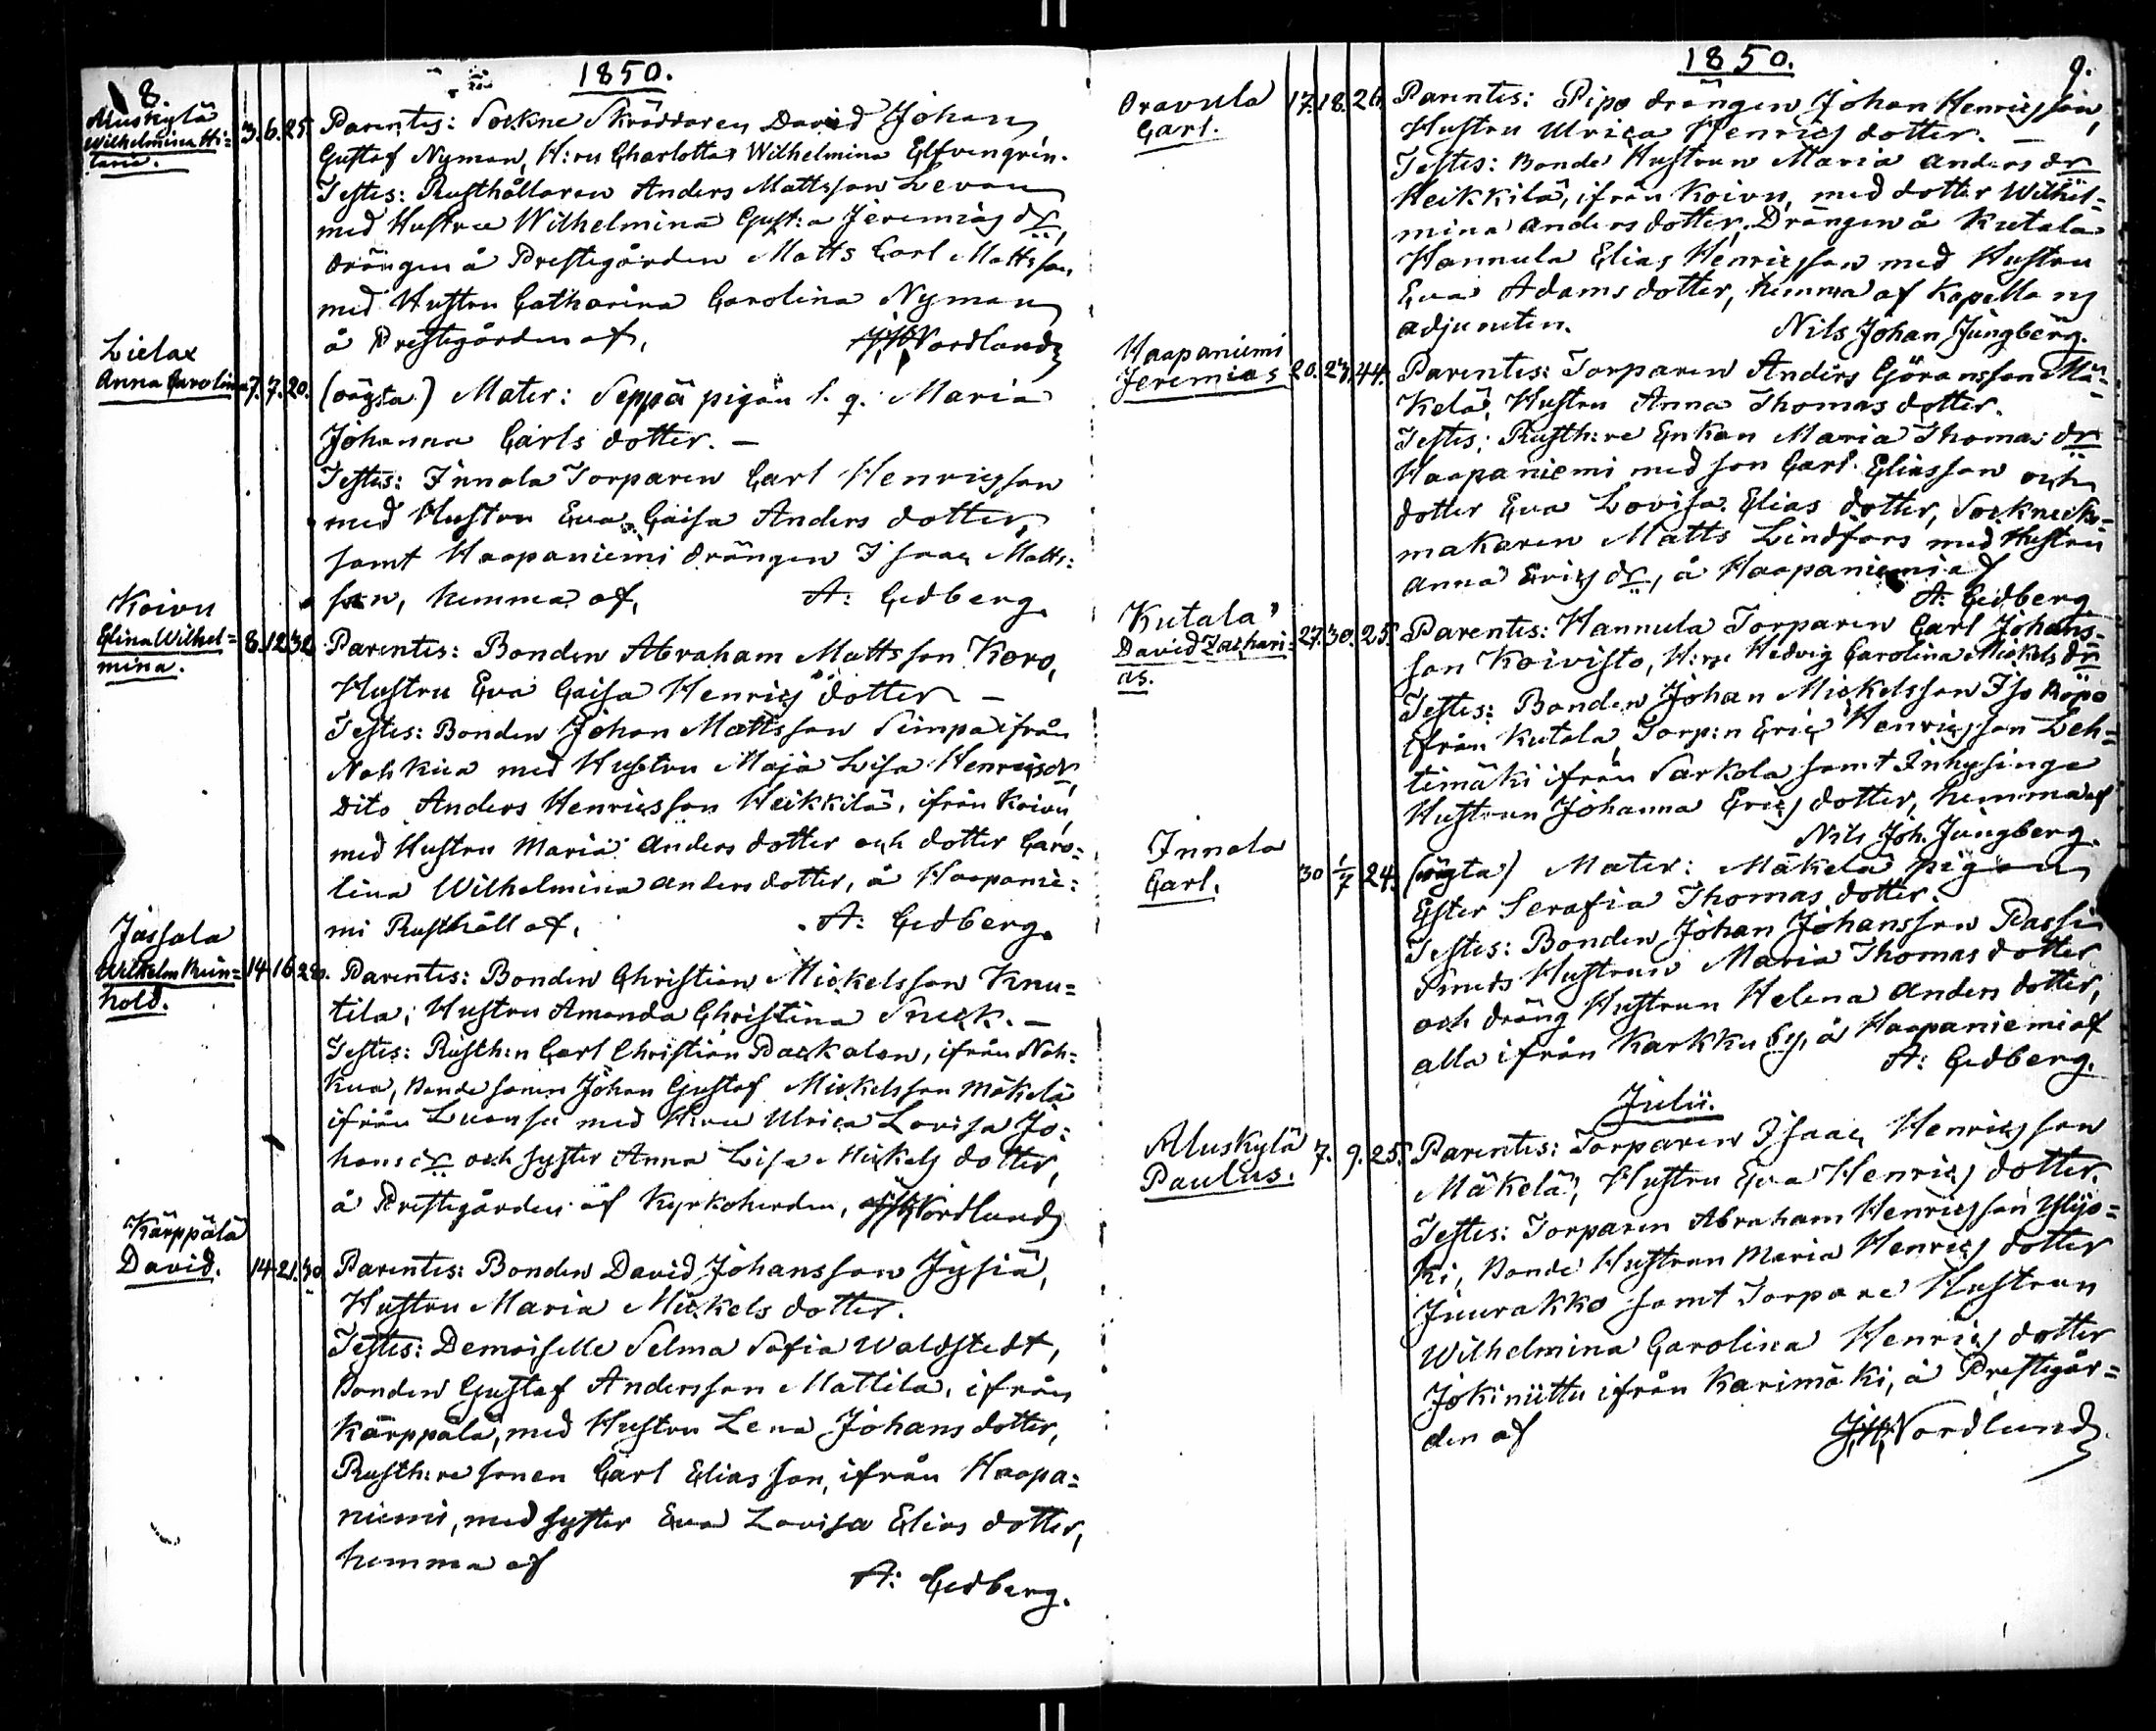 8.
1850.
Muskylä
Wilhelmina Hi=
laria.
3. 6. 25.
Parentes: Sockne Skräddaren David Johan
Gustaf Nyman, H:ru Charlotta Wilhelmina Elfvengrén.
Testes: Rusthållaren Anders Mattsson Levan
med Hustru Wilhelmina Gust:a Jeremias dr,
drängen å Prestegården Matts Carl Mattsson
med Hustru Catharina Carolina Nyman
å Prestegården af, Nordlund
Lielax
Anna Carolina
7. 7. 20.
(oägta) Mater: Seppä pigan Maria
Johanna Carls dotter. —
Testes: Innala Torparen Carl Henricsson
med Hustru Eva Caisa Anders dotter,
samt Haapaniemi drängen Isaac Matts:
son, hemma af, A: Cedberg.
Koivu
Elina Wilhel=
mina.
8. 12. 32.
Parentes: Bonden Abraham Mattsson Koro,
Hustru Eva Caisa Henrics dotter —
Testes: Bonden Johan Mattsson Simpa ifrån
Nohkua med Hustru Maja Lisa Henricsdr,
Dito Anders Henricsson Heikkilä, ifrån Koivu,
med Hustru Maria Anders dotter och dotter Caro=
lina Wilhelmina Anders dotter, å Haapanie:
mi Rusthåll af, A: Cedberg.
Jassala
Wilhelm Rein=
hold.
14. 16. 20.
Parentes: Bonden Christian Mickelsson Knu=
tila, Hustru Amanda Christina Sneck. —
Testes: Rusth:n Carl Christian Packalen, ifrån Noh=
kua, Bondesonen Johan Gustaf Mickelsson Mäkelä
ifrån med H:ru Ulrica Lovisa Jo:
hans dr och syster Anna Lisa Mickels dotter,
å Prestegården af Kyrkoherden, Nordlund
Kärppälä
David.
14. 21. 30.
Parentes: Bonden David Johansson Jysiä,
Hustru Maria Mickels dotter.
Testes: Demoiselle Selma Sofia Waldstedt,
Bonden Gustaf Andersson Mattila, ifrån
Kärppälä, med Hustru Lena Johans dotter,
Rusth:re sonen Carl Eliasson, ifrån Haapa=
niemi, med syster Eva Lovisa Elias dotter,
hemma af
A: Cedberg.
1850.
9.
Oravula
Carl.
17. 18. 26.
Parentes: Pipo drängen Johan Henricsson,
Hustru Ulrica Henrics dotter. —
Testes: Bonde Hustrun Maria Anders dr
Heikkilä, ifrån Koivu, med dotter Wilhel=
mina Anders dotter, Drängen å Kutala
Hannula Elias Henricsson med Hustru
Eva Adams dotter, hemma af Kapellans
adjuncten. Nils Johan Jungberg.
Haapaniemi
Jeremias
20. 23. 44.
Parentes: Torparen Anders Göransson Mä=
kelä, Hustru Anna Thomas dotter.
Testes: Rusth:re Enkan Maria Thomas dr
Haapaniemi med son Carl Eliasson och
dotter Eva Lovisa Elias dotter, Sockne Sko=
makaren Matts Lindfors med Hustru
Anna Erics dr, å Haapaniemi af
A: Cedberg.
Kutala
David Zachari=
as.
27. 30. 25.
Parentes: Hannula Torparen Carl Johans=
son Koivisto, H:ru Hedvig Carolina Mickels dr
Testes: Bonden Johan Mickelsson Iso Röpo
ifrån Kutala, Torp:n Eric Henricsson Leh=
timäki ifrån Sarkola samt Inhysinge
Hustrun Johanna Erics dotter, hemma af
Nils Joh. Jungberg.
Innala
Carl.
30 1/7 24.
(oägta) Mater: Mäkelä pigan
Ester Serafia Thomas dotter.
Testes: Bonden Johan Johansson Rassi
Smeds Hustrun Maria Thomas dotter
och dräng Hustrun Helena Anders dotter,
alla ifrån Karkku by, å Haapaniemi af
A: Cedberg.
Julii.
Muskylä
Paulus.
7. 9. 25.
Parentes: Torparen Isaac Henricsson
Mäkelä, Hustru Eva Henrics dotter.
Testes: Torparen Abraham Henricsson Ylijo=
ki, Bonde Hustrun Maria Henrics dotter
Juurakko samt Torpare Hustrun
Wilhelmina Carolina Henrics dotter
Jokiniittu ifrån Karimäki, å Prestegår=
den af Nordlund